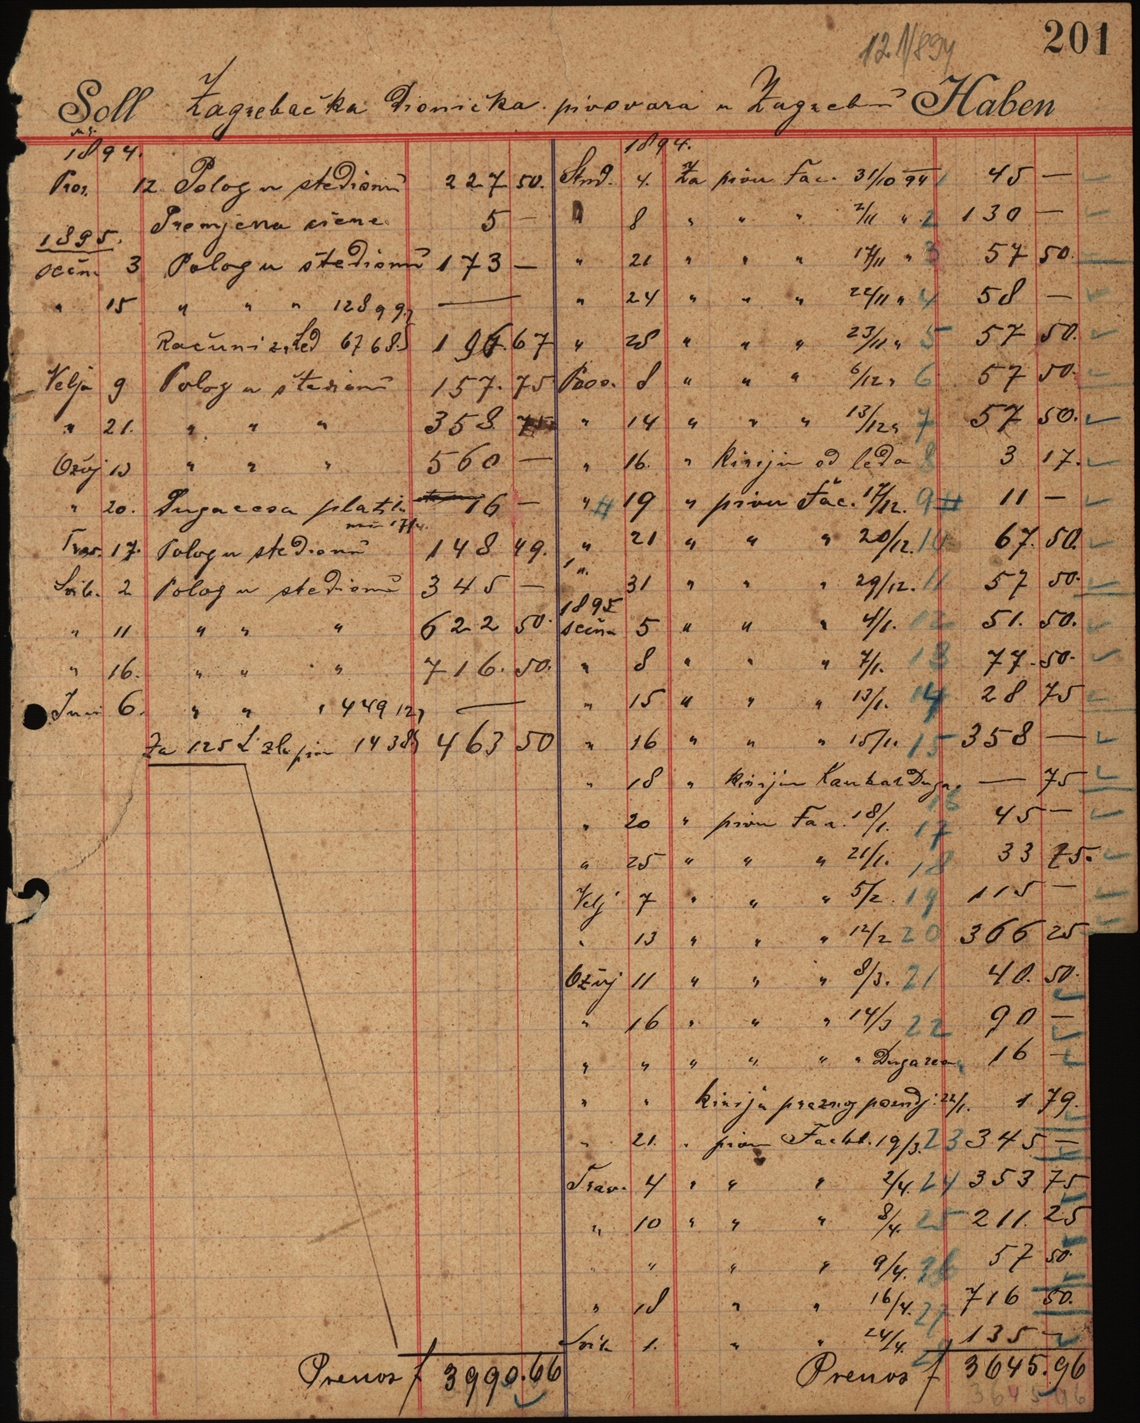 121/894
201
Soll Zagrebačka Dionička pivovara u Zagrebu Haben
1894.
Pros. 12 Polog u štedioni 227 50.
Promjena ciene 5 —
1895.
sečnj 3 Polog u štedioni 173 —
" 15 " " " 12899 —
Računi za led 67685 196 67
Velja 9 Polog u štedioni 157. 75
" 21. " " " 358 75
Ožuj 13 " " " 560 —
" 20. Dugaresa platila 16 —
Trav. 17. Polog u štedioni 148 49.
Svib. 2 Polog u štedioni 345 —
" 11 " " " 622 50.
" 16. " " " 716. 50.
Juni 6. " " " 449 12 —
Za 125 L zlo piv 14385 463 50
Prenos f 3990.66
1894.
Stud. 4. Za pivu Fac. 31/10 94 1 45 —
" 8 " " " 2/11 " 2 130 —
" 21 " " " 17/11 " 3 57 50.
" 24 " " " 22/11 " 4 58 —
" 28 " " " 23/11 " 5 57 50.
Pros. 8 " " " 6/12 " 6 57 50.
" 14 " " " 13/12 " 7 57 50.
" 16. " kirija od leda 8 3 17.
" # 19 " pivu Fac. 17/12. 9 # 11 —
" 21 " " " 20/12. 10 67. 50.
" 31 " " " 29/12. 11 57 50.
1895
sečnj 5 " " " 4/1. 12 51. 50.
" 8 " " " 7/1. 13 77. 50.
" 15 " " " 13/1. 14 28 75
" 16 " " " 15/1. 15 358 —
" 18 " kirija Kauhar Duga. 16 — 75
" 20 " pivu Fac. 18/1. 17 45 —
" 25 " " " 21/1. 18 33 75.
Velj 7 " " " 5/2. 19 115 —
" 13 " " " 12/2 20 366 25
Ožuj 11 " " " 8/3. 21 40. 50.
" 16 " " " 14/3 22 90 —
" " " " " " Dugaresa 16 —
" " kirija praznog posudj. 22/1. 1 79.
" 21. " pivu Facht. 19/3. 23 345 —
Trav. 4 " " " 2/4. 24 353 75
" 10 " " " 8/4. 25 211. 25
" " " " 9/4. 26 57 50.
" 18 " " 16/4. 27 716 50.
Svib. 1. " " 24/4. 135 —
Prenos f 3645.96
3645.96